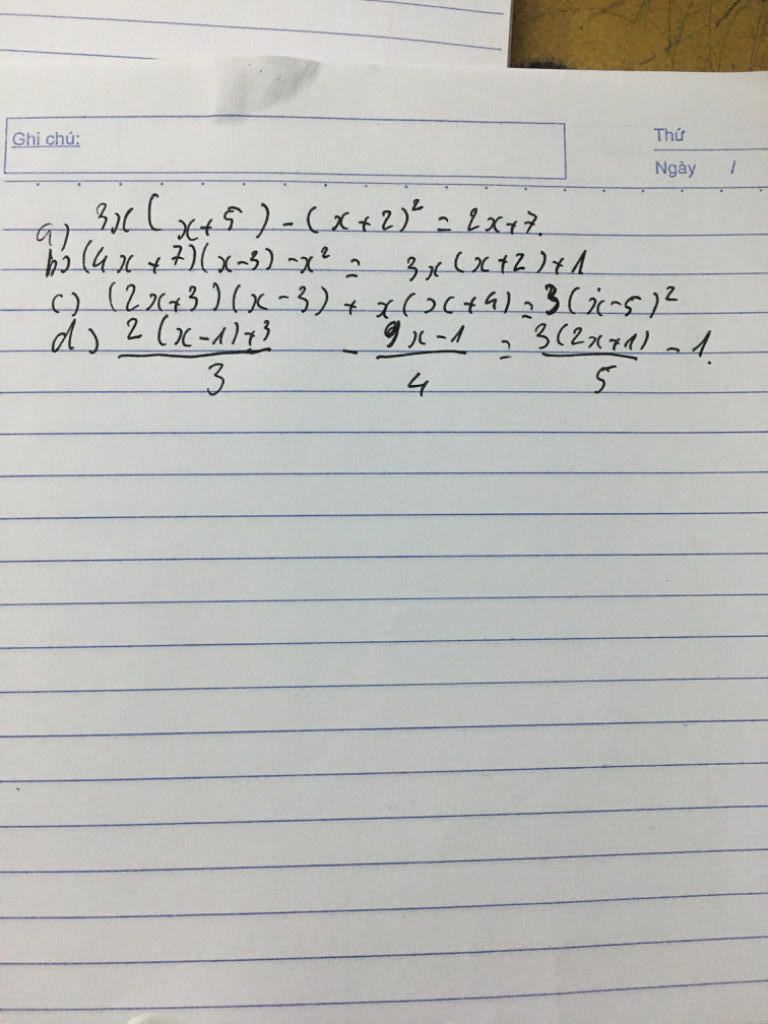 Ghi chú:
Thứ
Ngày /
a) 3x(x+5) - (x+2)² = 2x+7.
b) (4x+7)(x-3) - x² = 3x(x+2)+1
c) (2x+3)(x-3) + x(x+4) = 3(x-5)²
d) 2(x-1)+3 / 3 - 9x-1 / 4 = 3(2x+1) / 5 - 1.